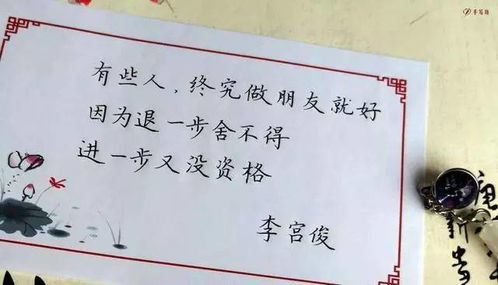 有些人，终究做朋友就好
因为退一步舍不得
进一步又没资格
李宫俊